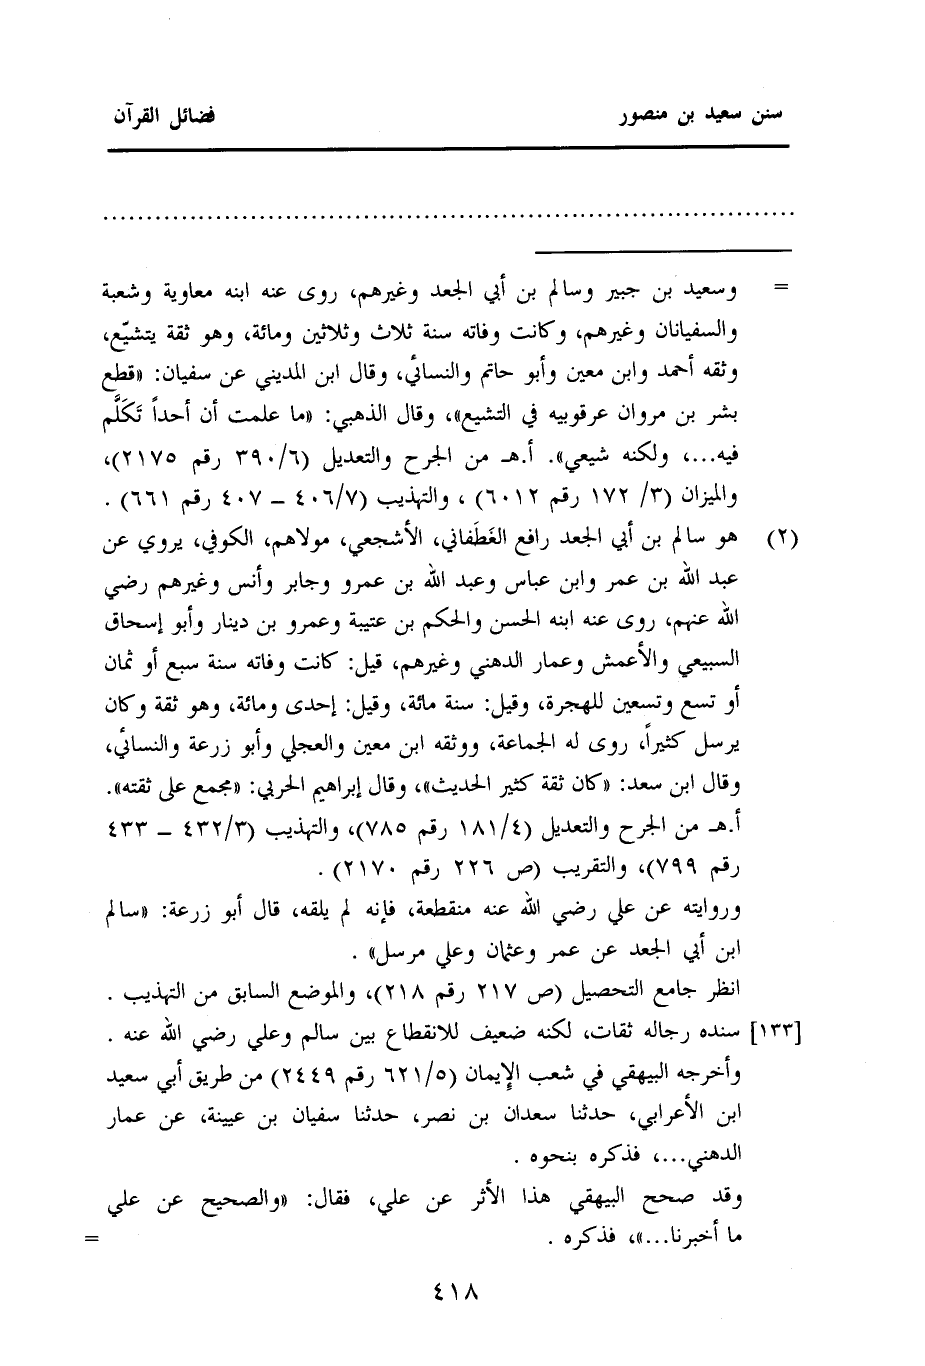 سنن سعيد بن منصور فضائل القرآن
................................................................................
= وسعيد بن جبير وسالم بن أبي الجعد وغيرهم، روى عنه ابنه معاوية وشعبة
والسفيانان وغيرهم، وكانت وفاته سنة ثلاث وثلاثين ومائة، وهو ثقة يتشيّع،
وثقه أحمد وابن معين وأبو حاتم والنسائي، وقال ابن المديني عن سفيان: «قطع
بشر بن مروان عرقوبيه في التشيع»، وقال الذهبي: «ما علمت أن أحداً تَكَلَّم
فيه...، ولكنه شيعي». أ.هـ من الجرح والتعديل (٦/ ٣٩٠ رقم ٢١٧٥)،
والميزان (٣/ ١٧٢ رقم ٦٠١٢) ، والتهذيب (٧/ ٤٠٦ – ٤٠٧ رقم ٦٦١) .
(٢) هو سالم بن أبي الجعد رافع الغَطَفاني، الأشجعي، مولاهم، الكوفي، يروي عن
عبد الله بن عمر وابن عباس وعبد الله بن عمرو وجابر وأنس وغيرهم رضي
الله عنهم، روى عنه ابنه الحسن والحكم بن عتيبة وعمرو بن دينار وأبو إسحاق
السبيعي والأعمش وعمار الدهني وغيرهم، قيل: كانت وفاته سنة سبع أو ثمان
أو تسع وتسعين للهجرة، وقيل: سنة مائة، وقيل: إحدى ومائة، وهو ثقة وكان
يرسل كثيراً، روى له الجماعة، ووثقه ابن معين والعجلي وأبو زرعة والنسائي،
وقال ابن سعد: «كان ثقة كثير الحديث»، وقال إبراهيم الحربي: «مجمع على ثقته».
أ.هـ من الجرح والتعديل (٤/ ١٨١ رقم ٧٨٥)، والتهذيب (٣/ ٤٣٢ – ٤٣٣
رقم ٧٩٩)، والتقريب (ص ٢٢٦ رقم ٢١٧٠) .
وروايته عن علي رضي الله عنه منقطعة، فإنه لم يلقه، قال أبو زرعة: «سالم
ابن أبي الجعد عن عمر وعثمان وعلي مرسل» .
انظر جامع التحصيل (ص ٢١٧ رقم ٢١٨)، والموضع السابق من التهذيب .
[١٣٣] سنده رجاله ثقات، لكنه ضعيف للانقطاع بين سالم وعلي رضي الله عنه .
وأخرجه البيهقي في شعب الإيمان (٥/ ٦٢١ رقم ٢٤٤٩) من طريق أبي سعيد
ابن الأعرابي، حدثنا سعدان بن نصر، حدثنا سفيان بن عيينة، عن عمار
الدهني...، فذكره بنحوه .
وقد صحح البيهقي هذا الأثر عن علي، فقال: «والصحيح عن علي
ما أخبرنا...»، فذكره . =
٤١٨